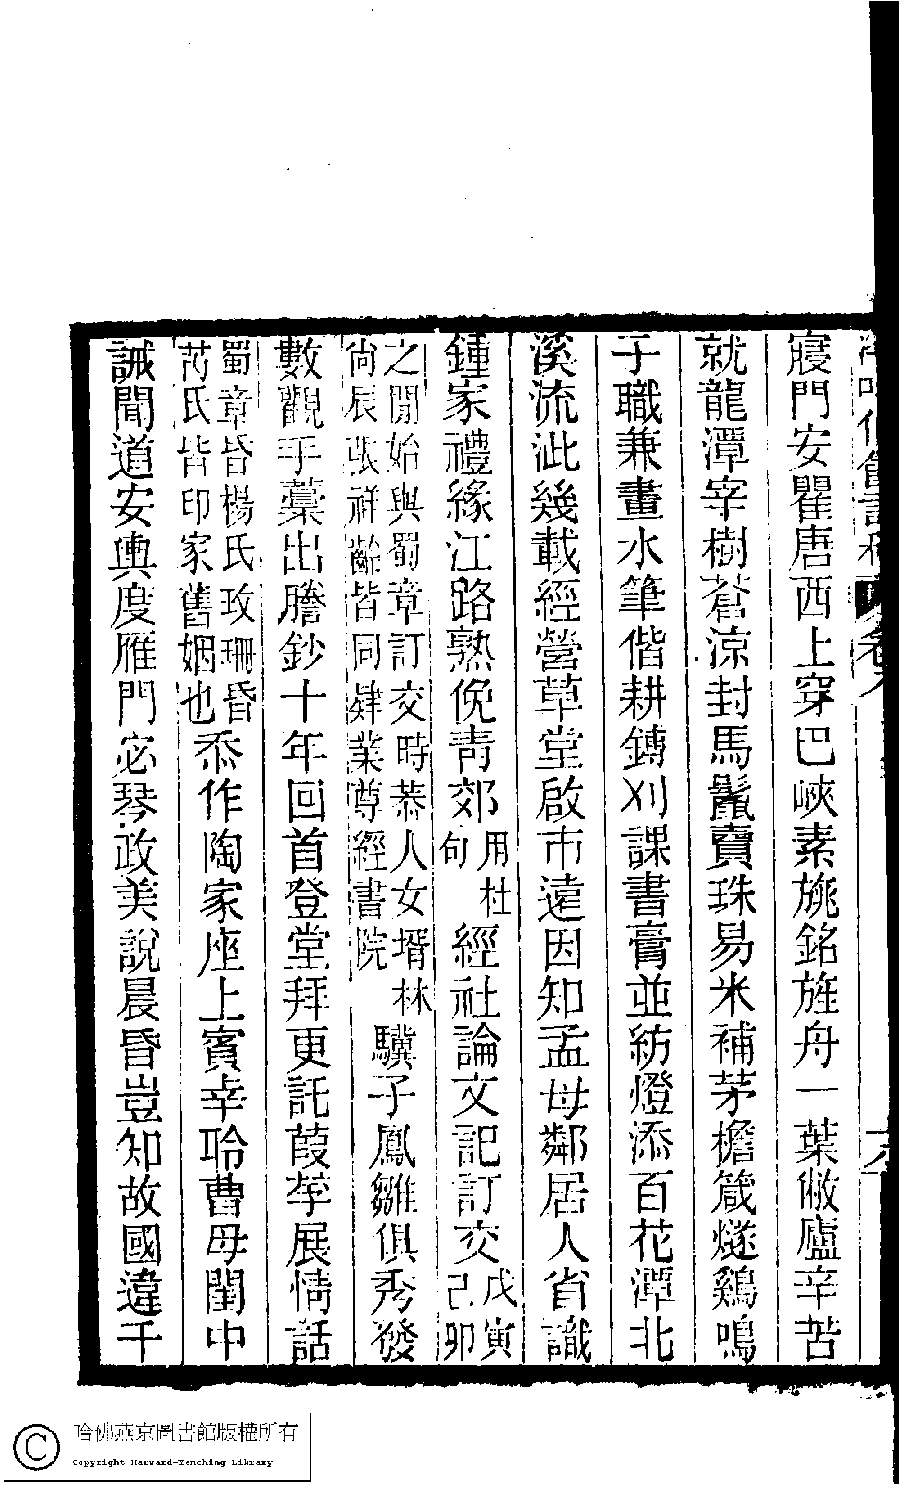 卷
寢門安瞿唐西上穿巴峽素旐銘旌舟一葉敝廬辛苦
就龍潭宰樹蒼涼封馬鬣賣珠易米補茅檐箴燧鷄鳴
子職兼畫水筆偕耕鎛刈課書膏並紡燈添百花潭北
溪流泚幾載經營草堂啟市遠因知孟母鄰居人省識
鍾家禮緣江路熟俛青郊用杜句經社論文記訂交戊寅己卯
之閒始與蜀章訂交時恭人女壻林尙辰張祥齡皆同肄業尊經書院驥子鳳雛俱秀發
數觀手藁出謄鈔十年回首登堂拜更託葭莩展情話
蜀章昏楊氏玫珊昏芮氏皆印家舊姻也忝作陶家座上賓幸聆曹母閨中
誡聞道安輿度雁門宓琴政美說晨昏豈知故國違千
哈佛燕京圖書館版權所有
Copyright Harvard-Yenching Library